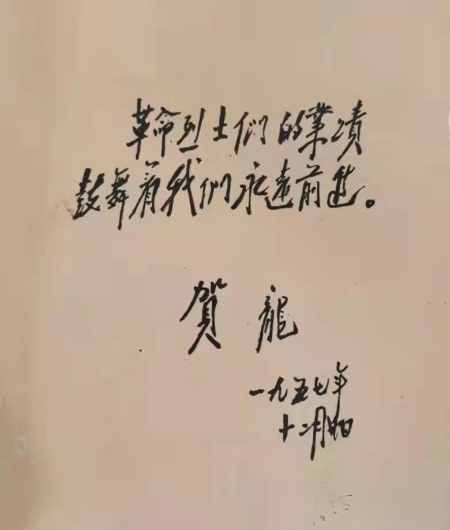 革命烈士们的業绩
鼓舞着我们永遠前进。
賀龍
一九五七年
十二月四日